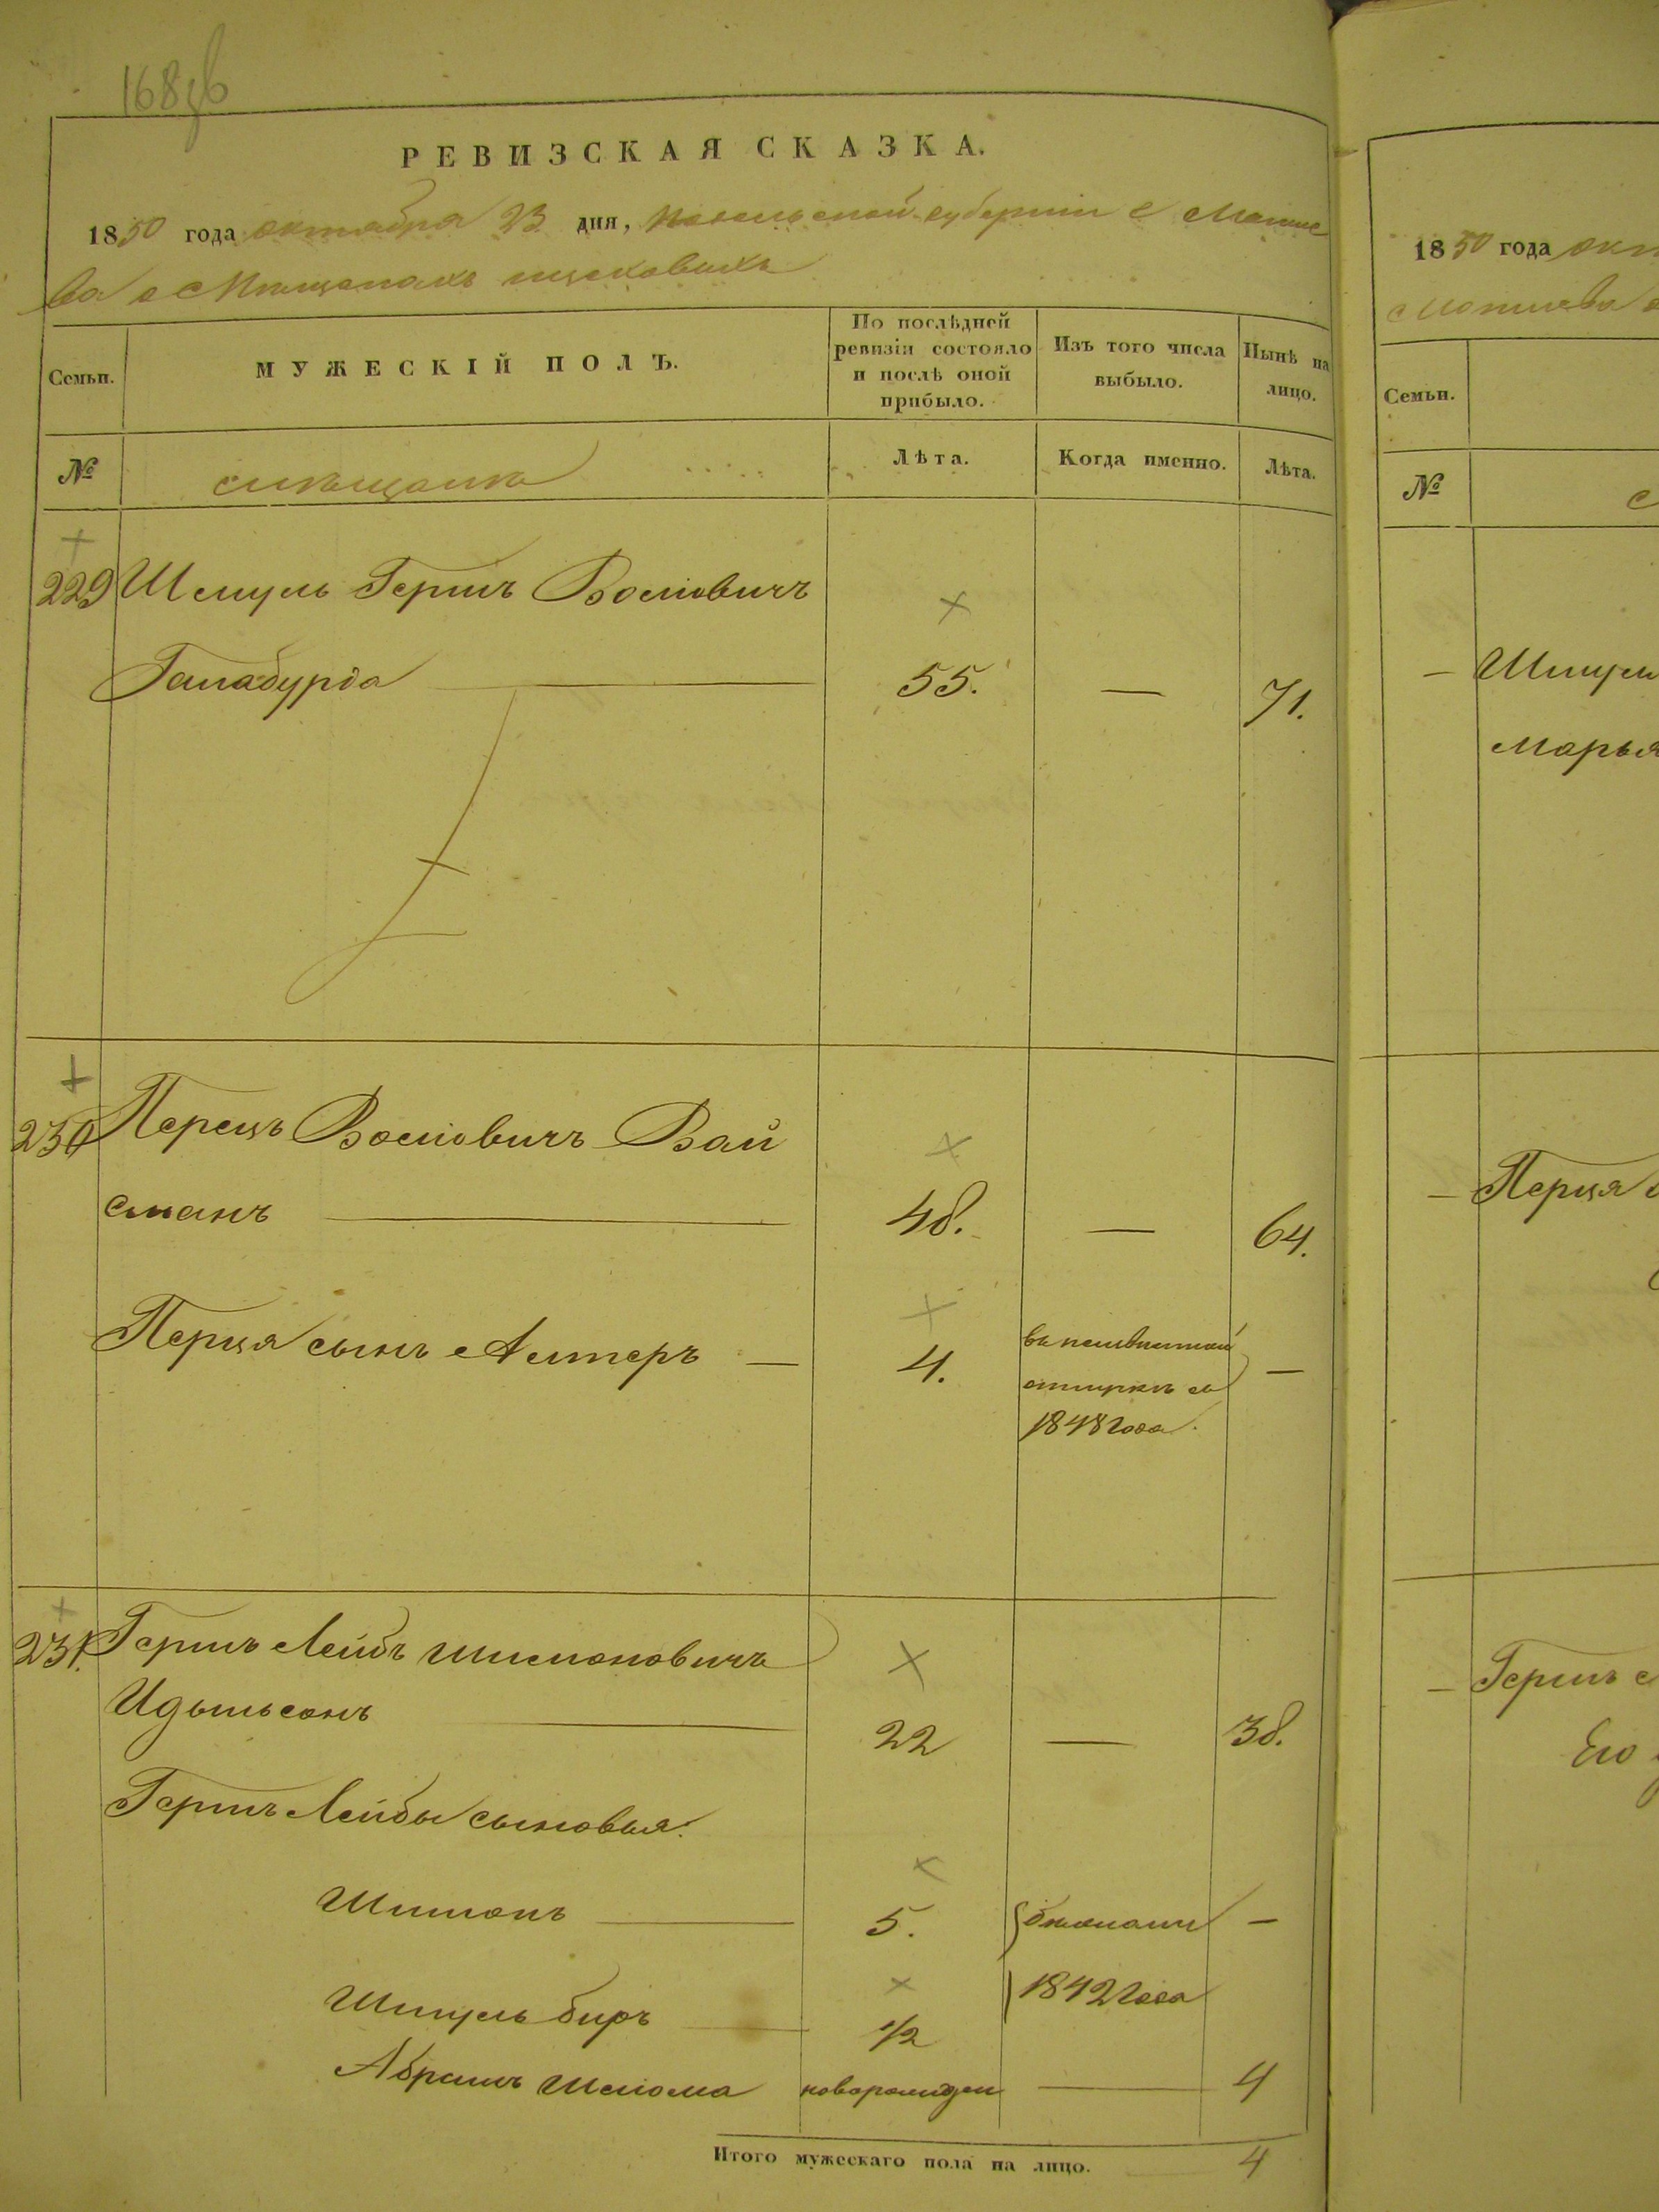 168 об
РЕВИЗСКАЯ СКАЗКА.
1850 года октября 23 дня, Подольской губернiи г Могиле
ва о Мещанахъ
Семьи.
МУЖЕСКІЙ ПОЛЪ.
По послѣдней ревизіи состояло и послѣ оной прибыло.
Изъ того числа выбыло.
Нынѣ на лицо.
№
мѣщане
Лѣта.
Когда именно.
Лѣта.
229 Шмуль Гершъ Волковичъ
Галабурда 55. — 71.
230 Перецъ Волковичъ Вай
сманъ 48. — 64.
Перца сынъ Алтеръ — 4. въ неизвѣстной —
отлучкѣ съ
1848 года.
231. Гершъ Лейбъ Шимоновичъ
Идельсонъ 22 — 38.
Гершъ Лейбы сыновья:
Шимонъ 5. —
Шмуль Беръ 1/2 1842 года
Абрамъ Шлома новорожден — 4
Итого мужескаго пола на лицо. 4
1850 года окт
Могилева
Семьи.
№
— Шмуля
Марья
— Перца
— Гершъ
Его